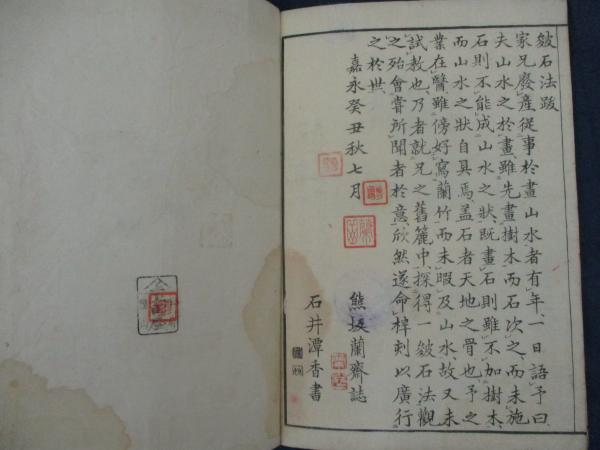 皴石法跋
家兄廢產從事於畫山水者有年、一日語予曰、
夫山水之於畫、雖先畫樹木而石次之、而未施
石則不能成山水之狀、既畫石則雖不加樹木、
而山水之狀自具焉、盖石者天地之骨也、予之
業在醫、雖傍好寫蘭竹、而未暇及山水、故又未
試教也、乃者就兄之舊簏中、探得一皴石法觀
之、殆會嘗所聞者於意、欣然遂命梓刺以廣行
之於世、
嘉永癸丑秋七月
熊坂蘭齋誌
石井潭香書